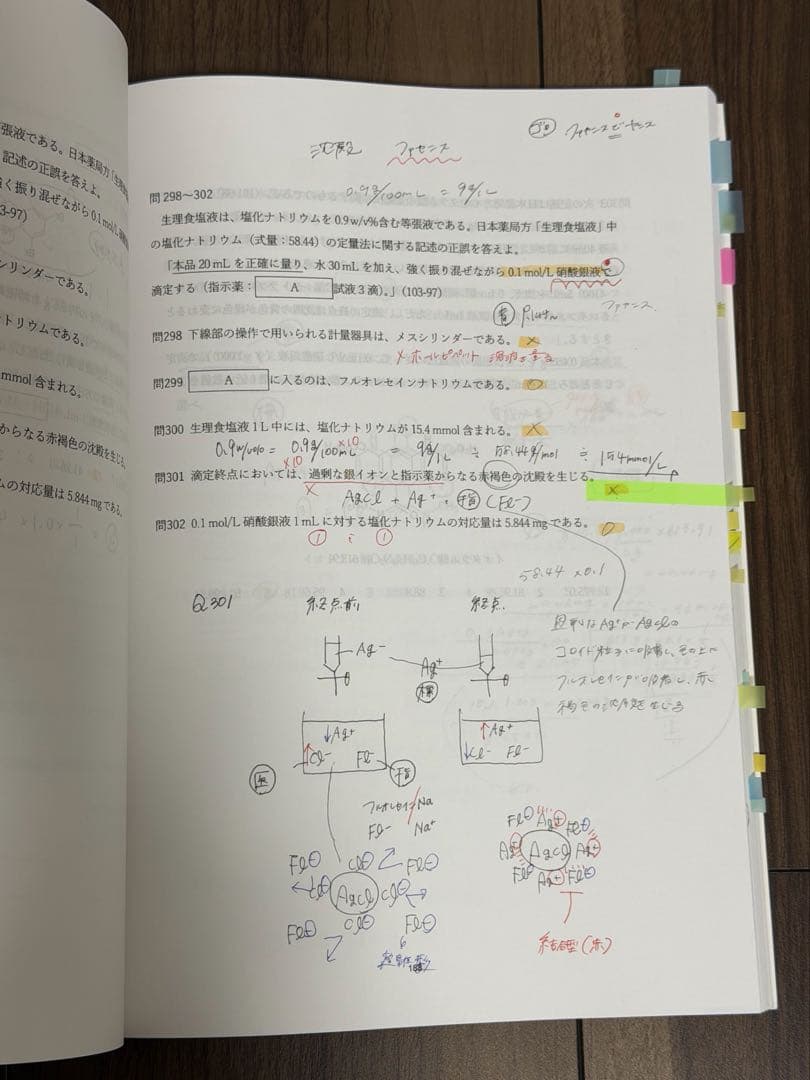 張液である。日本薬局方「生理
記述の正誤を答えよ。
強く振り混ぜながら 0.1 mol/L
03-97)
シリンダーである。
トリウムである。
mmol 含まれる。
からなる赤褐色の沈殿を生じる。
ムの対応量は 5.844 mg である。
沈殿 ファヤンス
ファヤンスで
問 298〜302
0.9g/100mL = 9g/L
生理食塩液は、塩化ナトリウムを 0.9 w/v%含む等張液である。日本薬局方「生理食塩液」中
の塩化ナトリウム（式量：58.44）の定量法に関する記述の正誤を答えよ。
「本品 20 mL を正確に量り、水 30 mL を加え、強く振り混ぜながら 0.1 mol/L 硝酸銀液で
滴定する（指示薬： A 試液 3 滴）。」(103-97)
ファヤンス
問298 下線部の操作で用いられる計量器具は、メスシリンダーである。 ×
× ホールピペット
問299 A に入るのは、フルオレセインナトリウムである。 ○
問300 生理食塩液 1 L 中には、塩化ナトリウムが 15.4 mmol 含まれる。 ×
0.9w/v% = 0.9g/100mL ×10 = 9g/L ÷ 58.44g/mol ≒ 154mmol/L
×10
問301 滴定終点においては、過剰な銀イオンと指示薬からなる赤褐色の沈殿を生じる。 ×
× AgCl + Ag⁺ 指 (Fl⁻)
問302 0.1 mol/L 硝酸銀液 1 mL に対する塩化ナトリウムの対応量は 5.844 mg である。 ○
① : ①
58.44 ×0.1
Q301 終点前 終点
過剰なAg⁺が AgClの
コロイド粒子に吸着し、その上に
フルオレセインが吸着し、赤
褐色の沈殿を生じる
Ag⁻ Ag⁺
標
↓Ag⁺ ↑Ag⁺
↑Cl⁻ Fl⁻ ↓Cl⁻ Fl⁻
医 指
フルオレセイン/Na
Fl⁻ Na⁺
Fl⊖ Cl⊖ Fl⊖
Cl⊖ AgCl Cl⊖
Fl⊖ Cl⊖ Fl⊖
遊離型
Fl⊖ Ag⊕ Fl⊖
Ag⊕ AgCl Ag⊕
Fl⊖ Ag⊕ Fl⊖
結合型(赤)